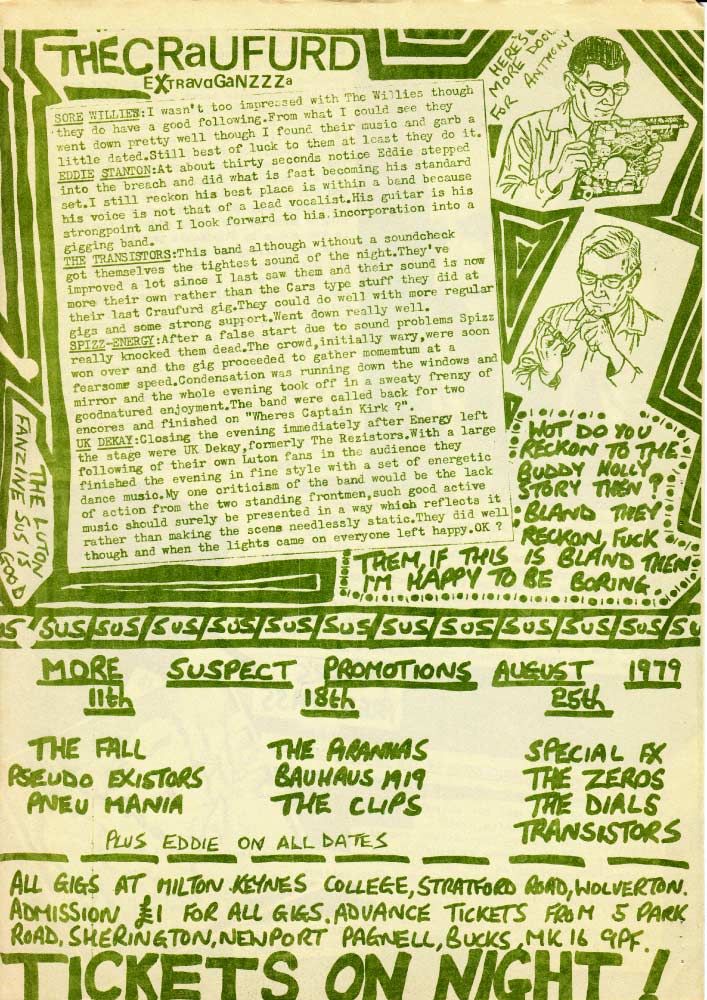 THE CRaUFURD
EXTravaGaNZZZa
HERE'S
MORE DOOD
FOR ANTHONY
SORE WILLIES:I wasn't too impressed with The Willies though
they do have a good following.From what I could see they
went down pretty well though I found their music and garb a
little dated.Still best of luck to them at least they do it.
EDDIE STANTON:At about thirty seconds notice Eddie stepped
into the breach and did what is fast becoming his standard
set.I still reckon his best place is within a band because
his voice is not that of a lead vocalist.His guitar is his
strongpoint and I look forward to his incorporation into a
gigging band.
THE TRANSISTORS:This band although without a soundcheck
got themselves the tightest sound of the night.They've
improved a lot since I last saw them and their sound is now
more their own rather than the Cars type stuff they did at
their last Craufurd gig.They could do well with more regular
gigs and some strong support.Went down really well.
SPIZZ-ENERGY:After a false start due to sound problems Spizz
really knocked them dead.The crowd,initially wary,were soon
won over and the gig proceeded to gather momemtum at a
fearsome speed.Condensation was running down the windows and
mirror and the whole evening took off in a sweaty frenzy of
goodnatured enjoyment.The band were called back for two
encores and finished on "Wheres Captain Kirk ?".
UK DEKAY:Closing the evening immediately after Energy left
the stage were UK Dekay,formerly The Rezistors.With a large
following of their own Luton fans in the audience they
finished the evening in fine style with a set of energetic
dance music.My one criticism of the band would be the lack
of action from the two standing frontmen,such good active
music should surely be presented in a way which reflects it
rather than making the scene needlessly static.They did well
though and when the lights came on everyone left happy.OK ?
THE LUTON
FANZINE SUS IS
GOOD
WOT DO YOU
RECKON TO THE
BUDDY HOLLY
STORY THEN ?
BLAND THEY
RECKON, FUCK
THEM, IF THIS IS BLAND THEN
I'M HAPPY TO BE BORING.
SUS/SUS/SUS/SUS/SUS/SUS/SUS/SUS/SUS/SUS/SUS/SUS
MORE SUSPECT PROMOTIONS AUGUST 1979
11th 18th 25th
THE FALL THE PIRANHAS SPECIAL FX
PSEUDO EXISTORS BAUHAUS 1919 THE ZEROS
PNEU MANIA THE CLIPS THE DIALS
TRANSISTORS
PLUS EDDIE ON ALL DATES
ALL GIGS AT MILTON KEYNES COLLEGE, STRATFORD ROAD, WOLVERTON.
ADMISSION £1 FOR ALL GIGS. ADVANCE TICKETS FROM 5 PARK
ROAD, SHERINGTON, NEWPORT PAGNELL, BUCKS, MK 16 9PF.
TICKETS ON NIGHT !